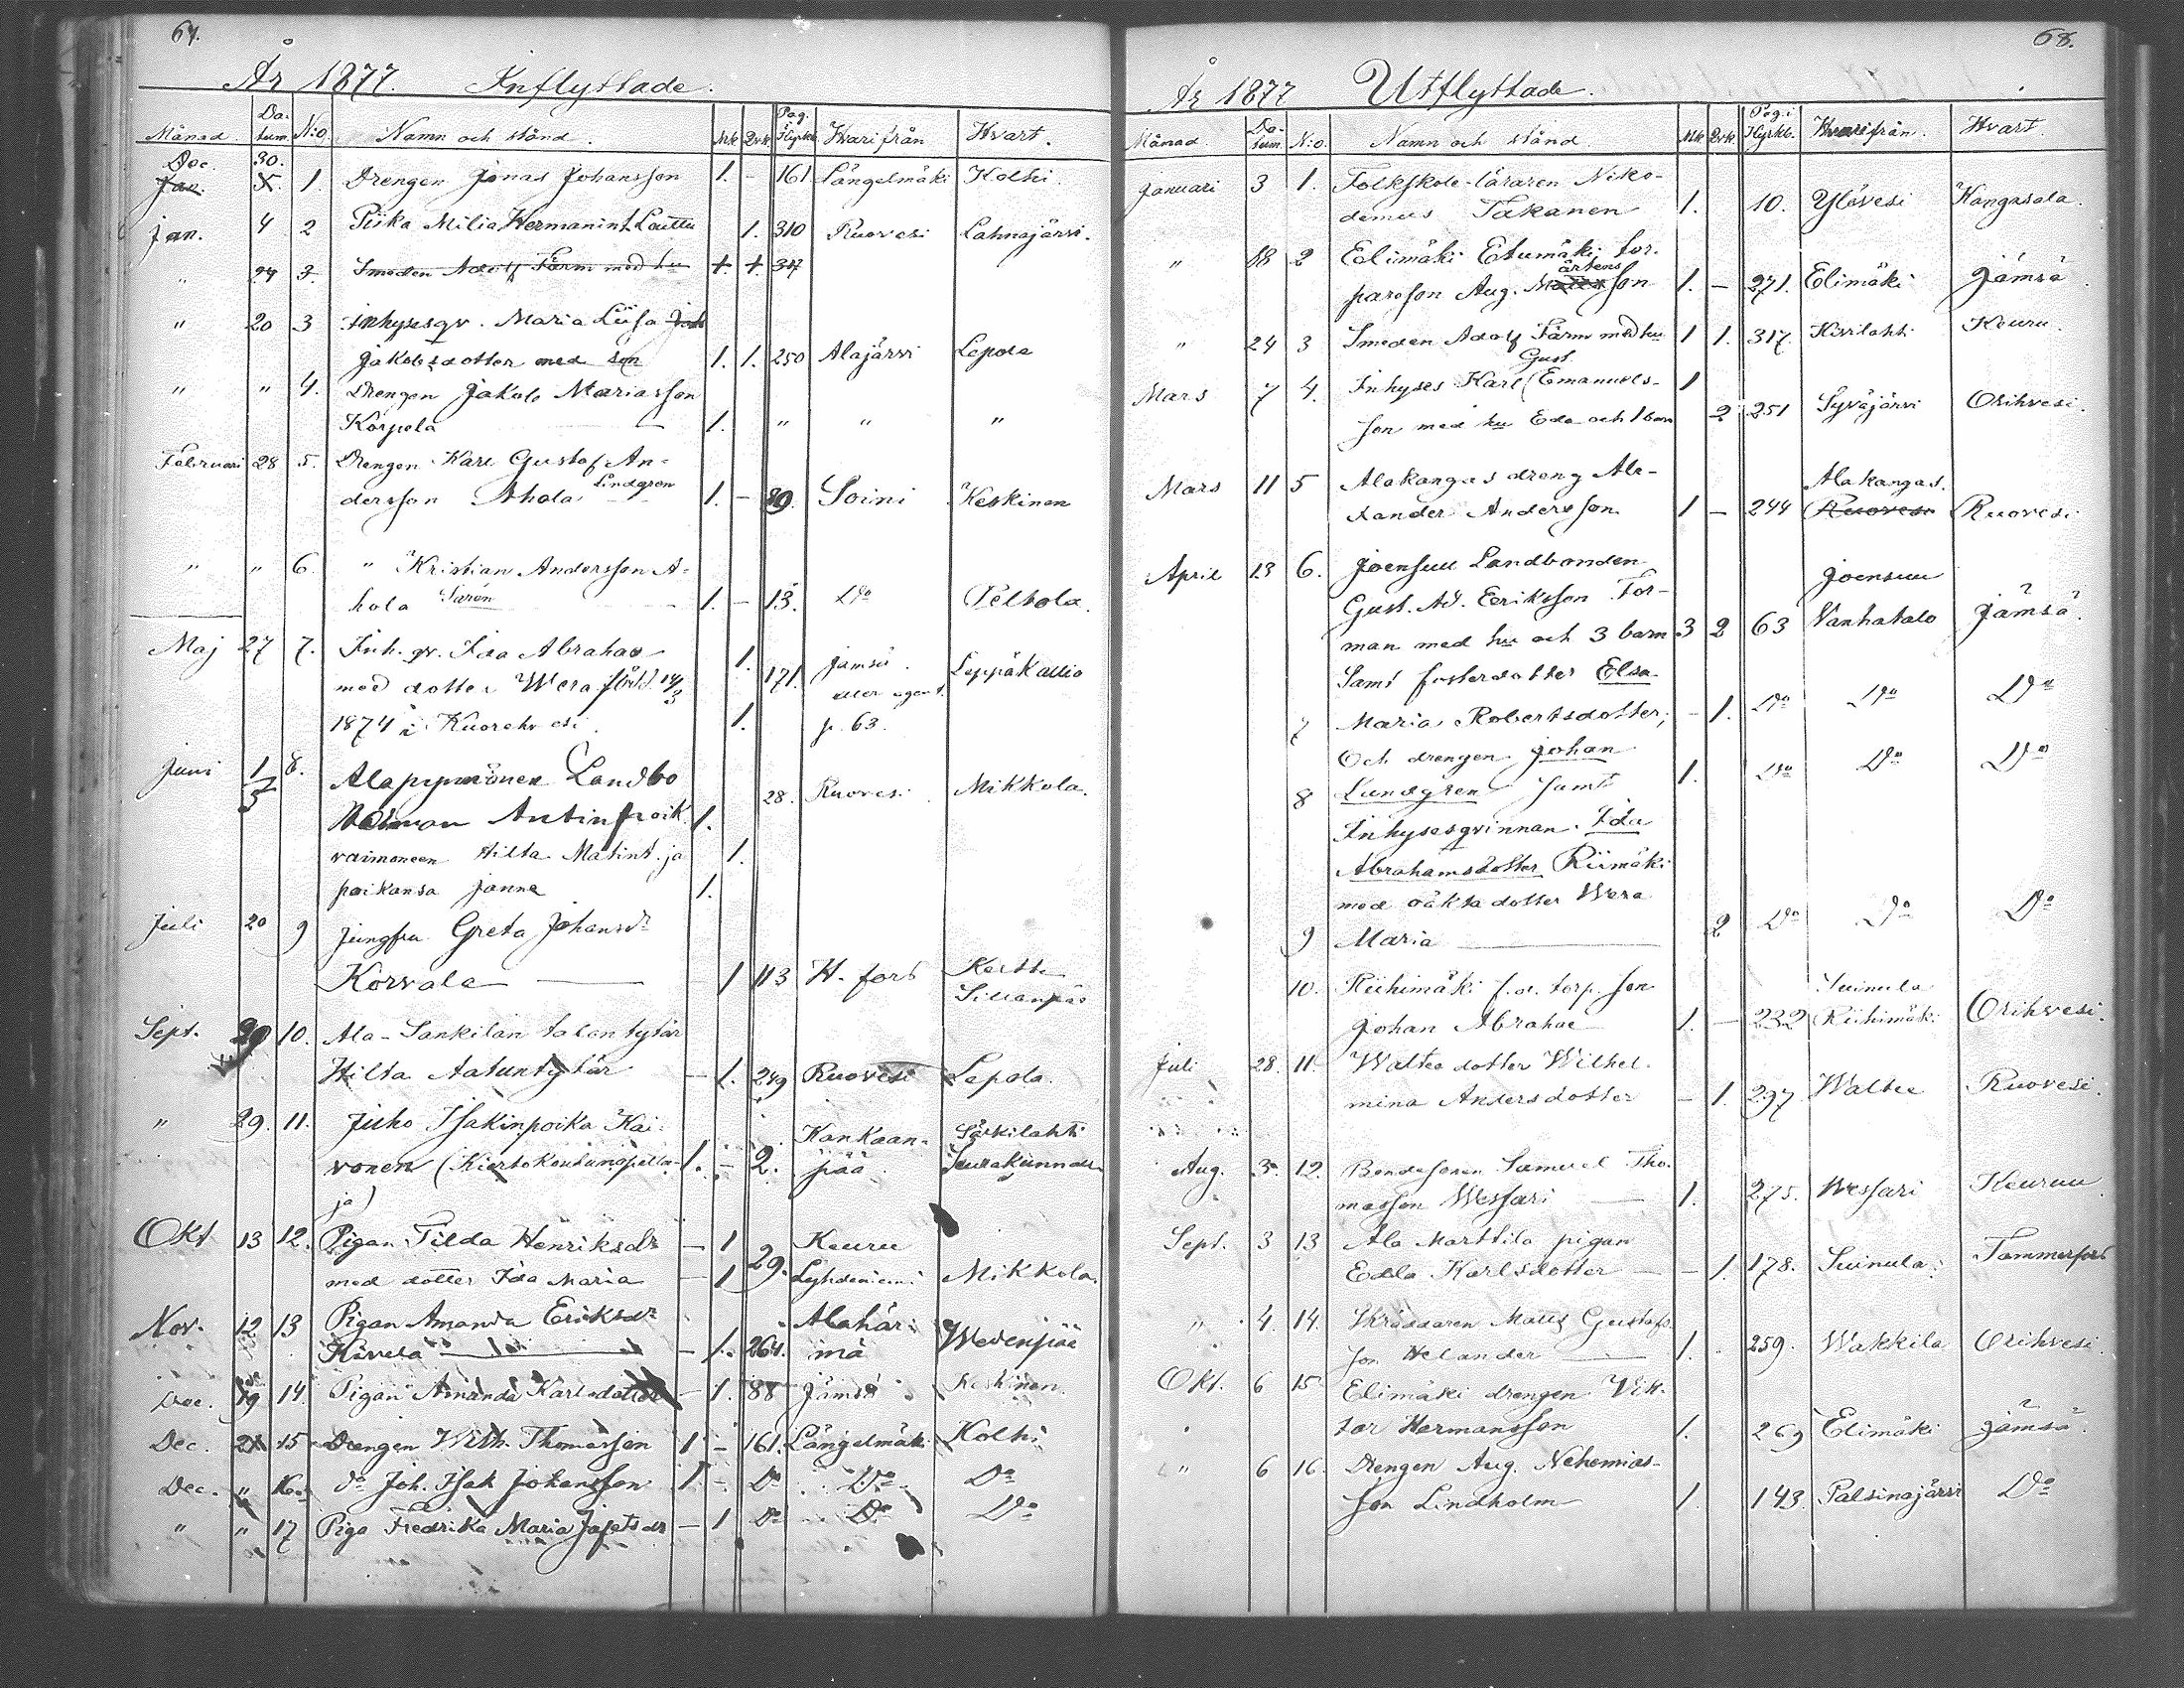 67.
År 1877. Inflyttade.
Månad. Da-tum. N:o. Namn och stånd. Mk. Qvk. Pag. i Kyrkb. Hvarifrån Hvart.
Dec. 30.
Jan. 5. 1. Drengen Jonas Johansson 1. - 161 Längelmäki Kolhi.
Jan. 4 2 Piika Milia Hermanint. Lauttu 1. 310 Ruovesi Lahnajärvi.
" 24 3. Smeden Adolf Färm med hu 1. 1. 317
" 20 3 Inhysesqv. Maria Liisa
Jakobsdotter med son 1. 1. 250 Alajärvi Lepola
" " 4. Drengen Jakob Mariasson
Korpela 1. " " "
Februari 28 5. Drengen Karl Gustaf An-
dersson Ahola Lindgren 1. - 89. Soini Keskinen
" " 6. " Kristian Andersson A-
hola Sarén 1. - 13. Do Peltola.
Maj 27 7. Inh. qv. Ida Abrahae 1.
med dotter Wera född 14/3 171. Jämsä. Leppäkallio
1874 i Kuorehvesi. 1. p. 63.
Juni 1/5 8. Alapynnönen Landbo
Antinpoik. 1. 28. Ruovesi Mikkola.
vaimoneen Hilta Matint. ja 1.
poikansa Janne 1.
Juli 20 9 Jungfru Greta Johansdr
Korvala 1 113 H. fors
Sept. 29 10. Ala-Sankilan talon tytär
Hilta Aatuntytär - 1. 249 Ruovesi Lepola.
" 29. 11. Juho Isakinpoika Kai-
vonen (Kiertokoulunopetta- 1. - 2. Kankaan-pää Särkilahti Seurakunnan
ja)
Okt 13 12. Pigan Tilda Henriksdr - 1 Keuru
med dotter Ida Maria - 1 29. Lyhdeniemi Mikkola.
Nov. 12 13 Pigan Amanda Eriksdr Alahär-
Kivelä - 1. 264. mä Wedenpää
Dec. 19 14. Pigan Amanda Karlsdotter - 1. 88 Jämsä Keskinen
Dec. 21 15 Drengen Wilh. Thomasson 1 - 161. Längelmäki Kolhi
Dec. " 16. do Joh. Isak Johansson 1. - Do Do Do
" " 17 Piga Fredrika Maria Jafetsdr - 1 Do Do Do
68.
År 1877 Utflyttade.
Månad. Da-tum. N:o. Namn och stånd Mk. Qvk. Pag. i Kyrkb. Hvarifrån. Hvart.
Januari 3 1. Folkskole-läraren Niko-
demus Takanen 1. 10. Ylövesi Kangasala.
" 18 2 Elimäki Etumäki tor-
parson Aug. Mårtensson 1. - 271. Elimäki Jämsä.
" 24 3 Smeden Adolf Färm med hu 1 1. 317. Kivilahti Keuru.
Mars 7 4. Inhyses Karl Gust. Emanuels- 1
son med hu Eda och 1 barn 2 251 Syväjärvi Orihvesi.
Mars 11 5 Alakangas dreng Ale- Alakangas.
xander Andersson 1 - 244 Ruovesi Ruovesi.
April 13 6. Joensuu Landbonden Joensuu
Gust. Ad. Eriksson For-
man med hu och 3 barn 3 2 63 Vanhatalo Jämsä.
Samt fosterdotter Elsa
7 Maria Robertsdotter; - 1. Do Do Do
Och drengen Johan
8 Lundgren samt 1. Do Do Do
Inhysesqvinnan Ida
Abrahamsdotter Riimäki
med oäkta dotter Wera
9 Maria 2 Do Do Do
10. Riihimäki f.d. torp. son Suinula
Johan Abrahae 1. - 232 Riihimäki Orihvesi.
Juli 28. 11. Waltee dotter Wilhel-
mina Andersdotter - 1. 297. Waltee Ruovesi
Aug. 3. 12. Bondesonen Samuel Tho-
masson Wessari 1. 275. Wessari Keuruu
Sept. 3 13 Ala Marttila pigan
Edla Karlsdotter - 1. 178. Suinula Tammerfors
" 4. 14. Skräddaren Matts Gustafs-
son Helander 1. 259. Wäkkilä Orihvesi.
Okt. 6 15. Elimäki drengen Vik-
tor Hermansson 1. 269 Elimäki Jämsä.
" 6 16. Drengen Aug. Nehemias-
son Lindholm 1. 143. Palsinajärvi Do